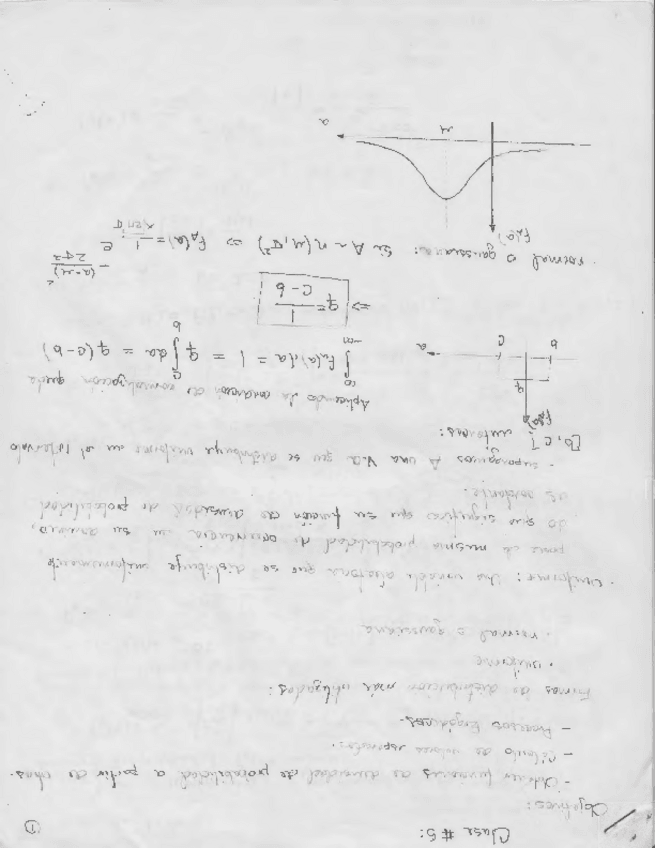 ①
Clase #5:
Objetivos:
- Obtener funciones de densidad de probabilidad a partir de otras.
- Cálculo de valores esperados.
- Procesos Ergódicos.
Formas de distribución más utilizadas:
· uniforme
· normal o gaussiana
· Uniforme: Una variable aleatoria que se distribuye uniformemente
posee la misma probabilidad de ocurrencia en su
lo que significa que su función de densidad de probabilidad
es constante.
- supongamos A una V.a. que se distribuye uniforme en el intervalo
[b, c] entonces:
fₐ(a)
q
b c a
Aplicando la condición de normalización queda
∫_{-∞}^{∞} fₐ(a) da = 1 = q ∫_b^c da = q (c-b)
⇒ q = 1/(c-b)
· normal o gaussiana: Si A ~ n(μ, σ²) ⇒ fₐ(a) = 1/(√2π σ) e^{-(a-μ)²/(2σ²)}
fₐ(a)
μ a